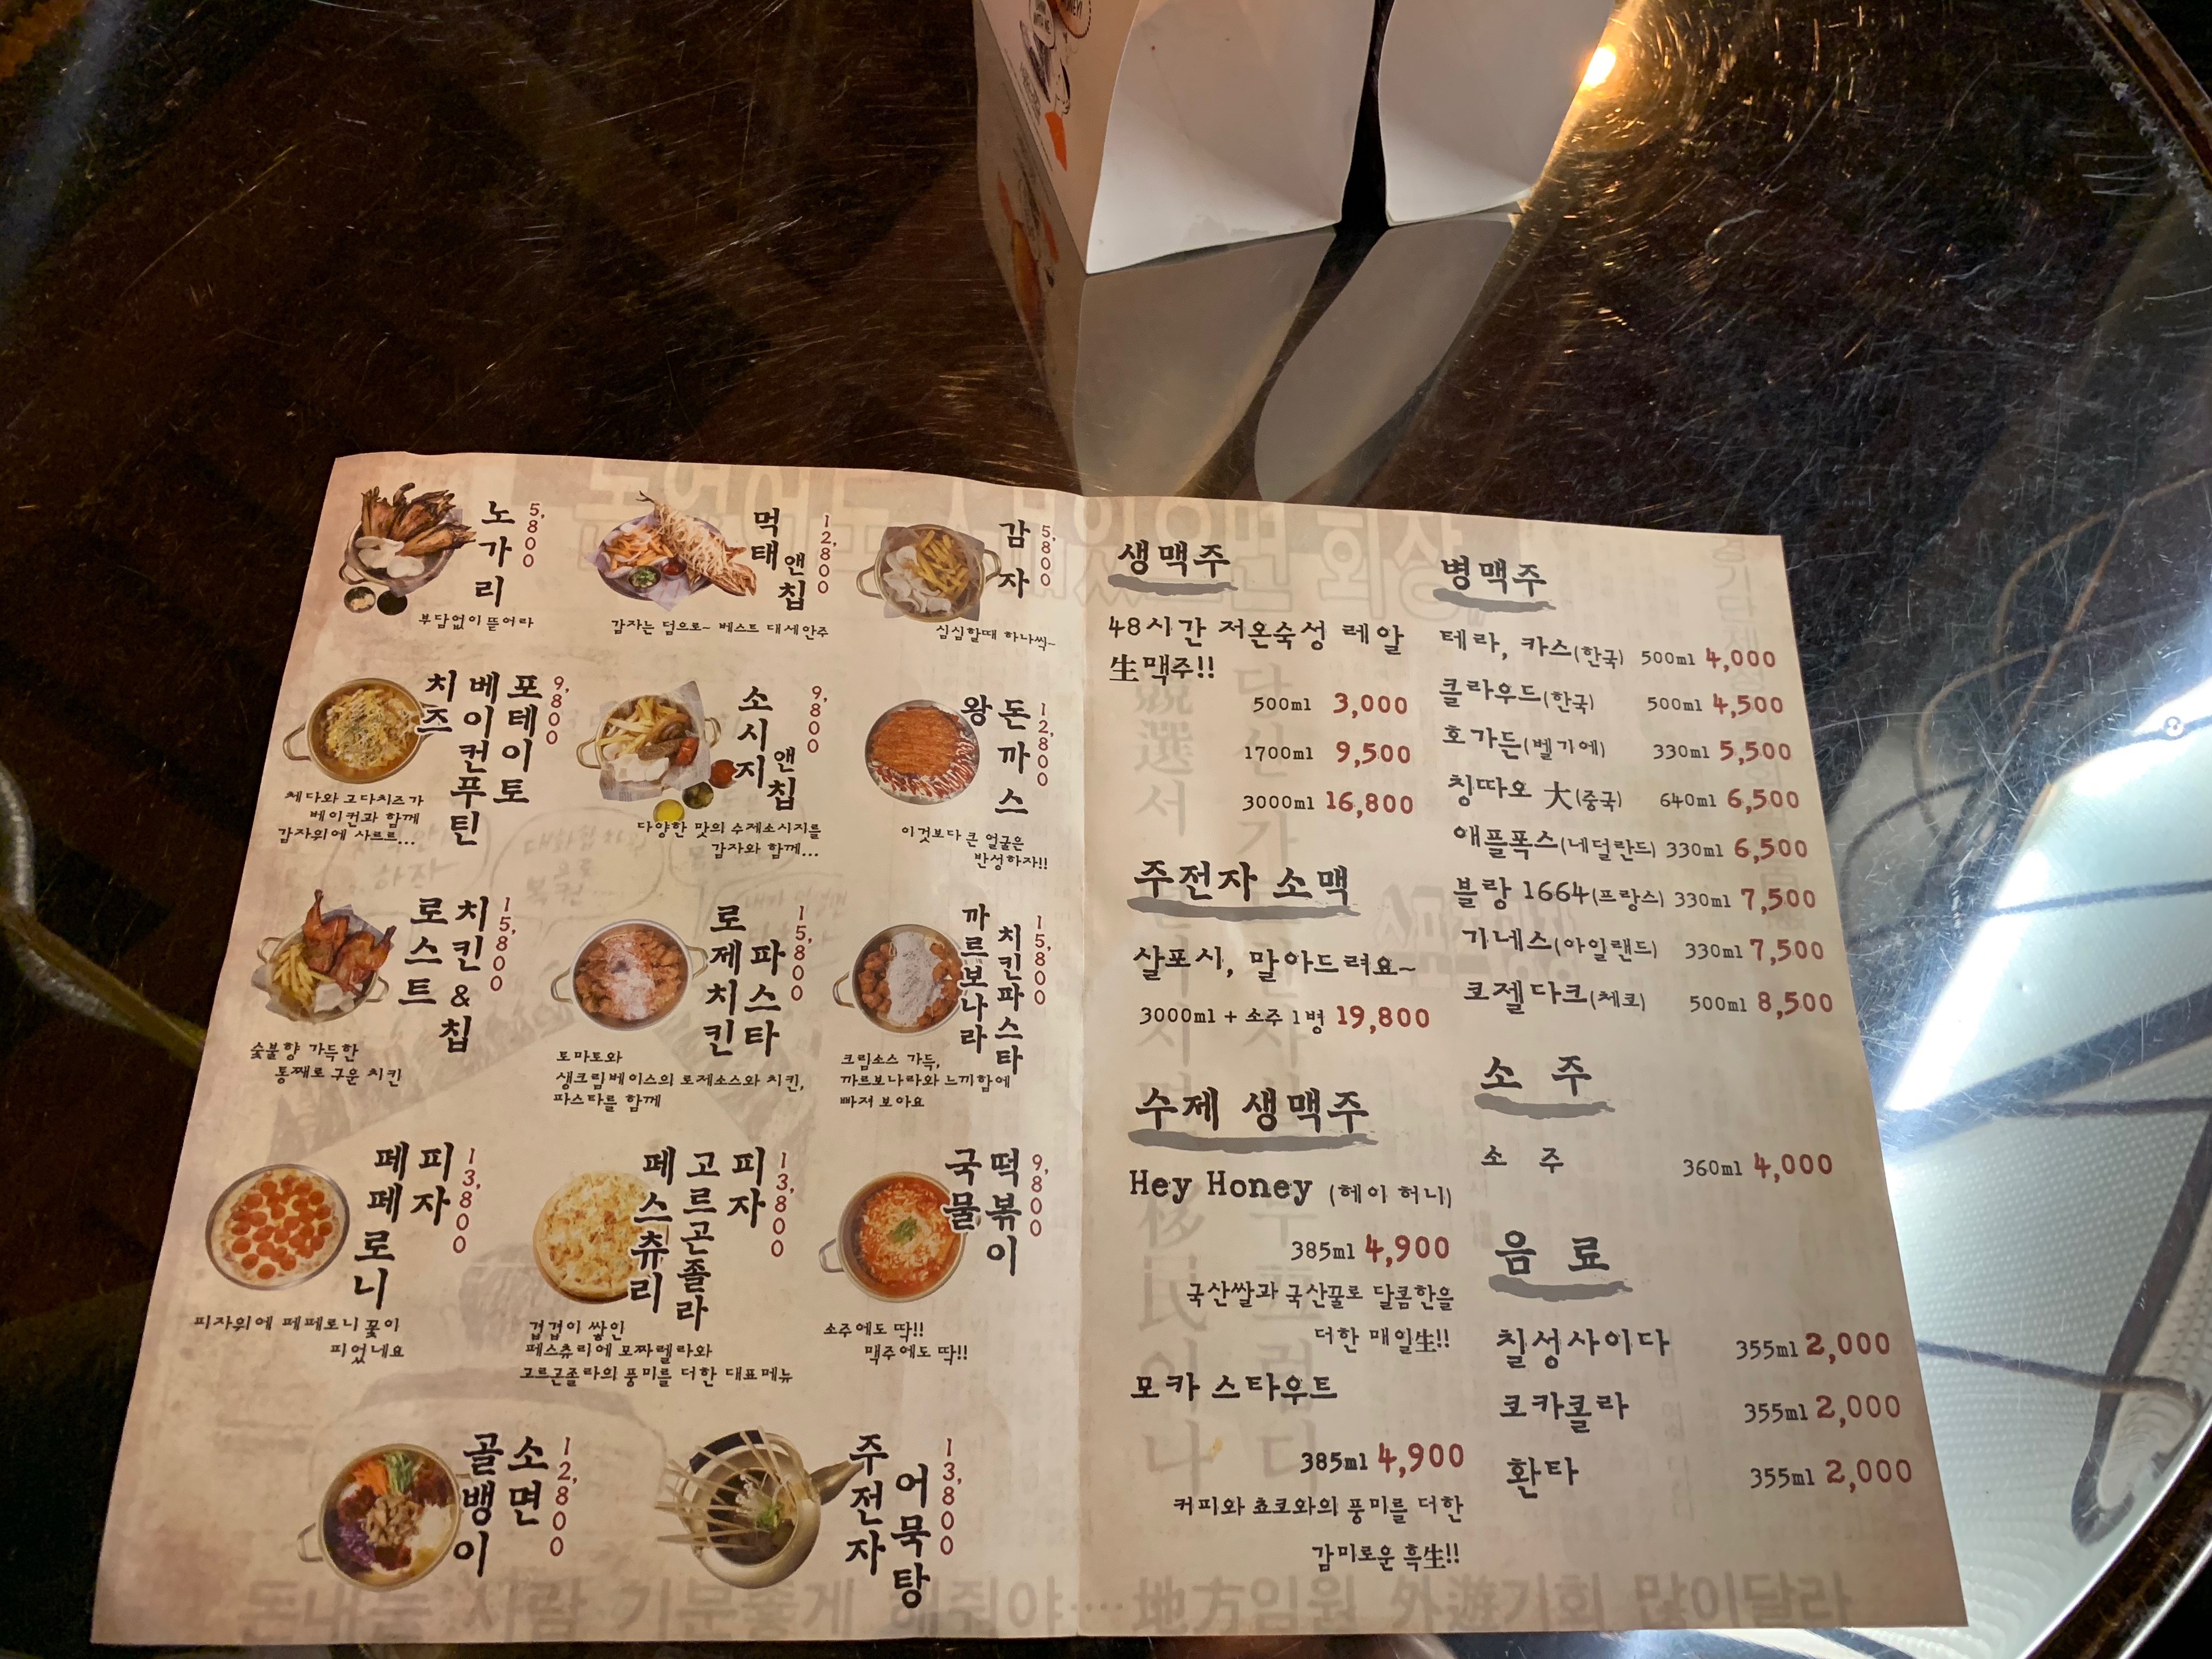 노가리
5,800
부담없이 뜯어라
먹태앤칩
12,800
감자는 덤으로~ 베스트 대세안주
감자
5,800
심심할때 하나씩~
포테이토
베이컨푸틴
치즈
9,800
체다와 고다치즈가
베이컨과 함께
감자위에 사르르...
소시지앤칩
9,800
다양한 맛의 수제소시지를
감자와 함께...
왕돈까스
12,800
이것보다 큰 얼굴은
반성하자!!
로스트
치킨&칩
15,800
숯불향 가득한
통째로 구운 치킨
로제치킨
파스타
15,800
토마토와
생크림베이스의 로제소스와 치킨,
파스타를 함께
까르보나라
치킨파스타
15,800
크림소스 가득,
까르보나라와 느끼함에
빠져 보아요
페페로니
피자
13,800
피자위에 페페로니 꽃이
피었네요
페스츄리
고르곤졸라
피자
13,800
겹겹이 쌓인
페스츄리에 모짜렐라와
고르곤졸라의 풍미를 더한 대표메뉴
국물
떡볶이
9,800
소주에도 딱!!
맥주에도 딱!!
골뱅이
소면
12,800
주전자
어묵탕
13,800
생맥주
48시간 저온숙성 레알
生맥주!!
500ml 3,000
1700ml 9,500
3000ml 16,800
주전자 소맥
살포시, 말아드려요~
3000ml + 소주 1병 19,800
수제 생맥주
Hey Honey (헤이 허니)
385ml 4,900
국산쌀과 국산꿀로 달콤한을
더한 매일生!!
모카 스타우트
385ml 4,900
커피와 쵸코와의 풍미를 더한
감미로운 흑生!!
병맥주
테라, 카스(한국) 500ml 4,000
클라우드(한국) 500ml 4,500
호가든(벨기에) 330ml 5,500
칭따오 大(중국) 640ml 6,500
애플폭스(네덜란드) 330ml 6,500
블랑 1664(프랑스) 330ml 7,500
기네스(아일랜드) 330ml 7,500
코젤다크(체코) 500ml 8,500
소주
소주 360ml 4,000
음료
칠성사이다 355ml 2,000
코카콜라 355ml 2,000
환타 355ml 2,000
사람 기분좋게 해줘야...地方임원 外遊기회 많이달라